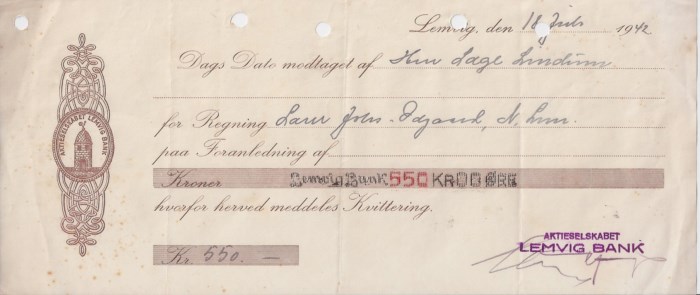 Lemvig, den 18 Juli 1942
Dags Dato modtaget af Herr Aage Lindum
for Regning Laur Johs. Odgaard, N. Lem.
paa Foranledning af
Kroner Lemvig Bank 550 KR 00 ØRE
hvorfor herved meddeles Kvittering.
AKTIESELSKABET LEMVIG BANK
Kr. 550.—
AKTIESELSKABET
LEMVIG BANK